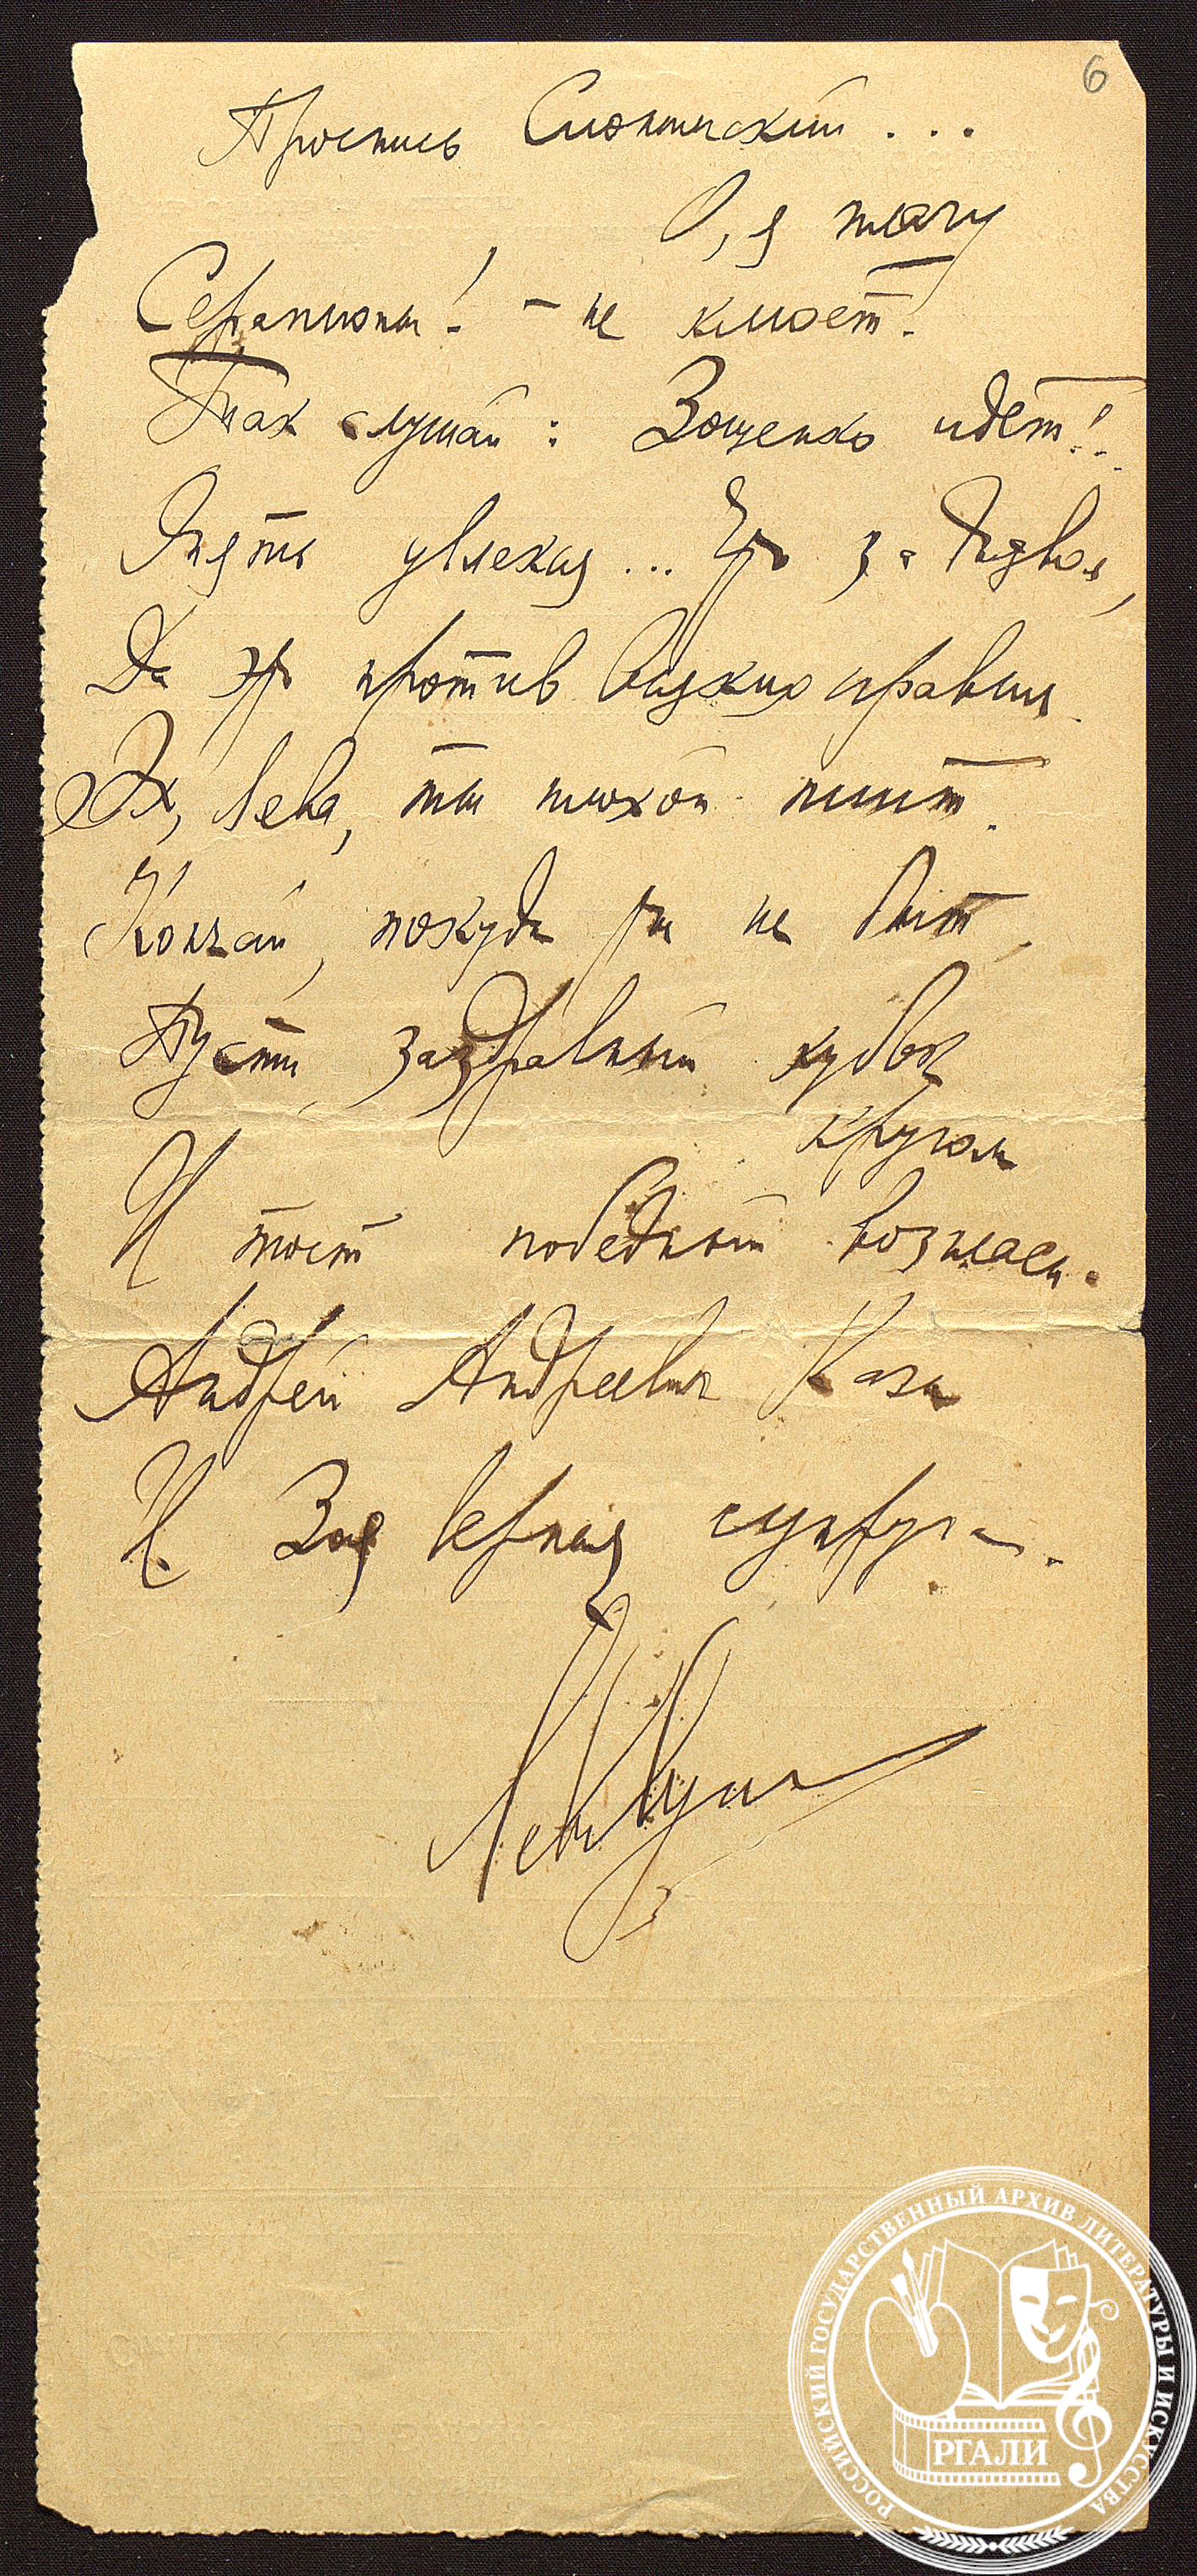 6
Проснись Слонимский...
О, я молчу
Серапионы! – не клюет.
Так слушай: Зощенко идёт!..
Опять увлекся... Что за
Да это против всяких правил.
Эх, Лева, ты плохой пиит.
Кончай, покуда ты не бит,
Пусть заздравный кубок
кругом
И тост победный возгласи.
Андрей Андреевич Кази
И Зоя верная супруга.
Лев Лунц
РОССИЙСКИЙ ГОСУДАРСТВЕННЫЙ АРХИВ ЛИТЕРАТУРЫ И ИСКУССТВА
РГАЛИ